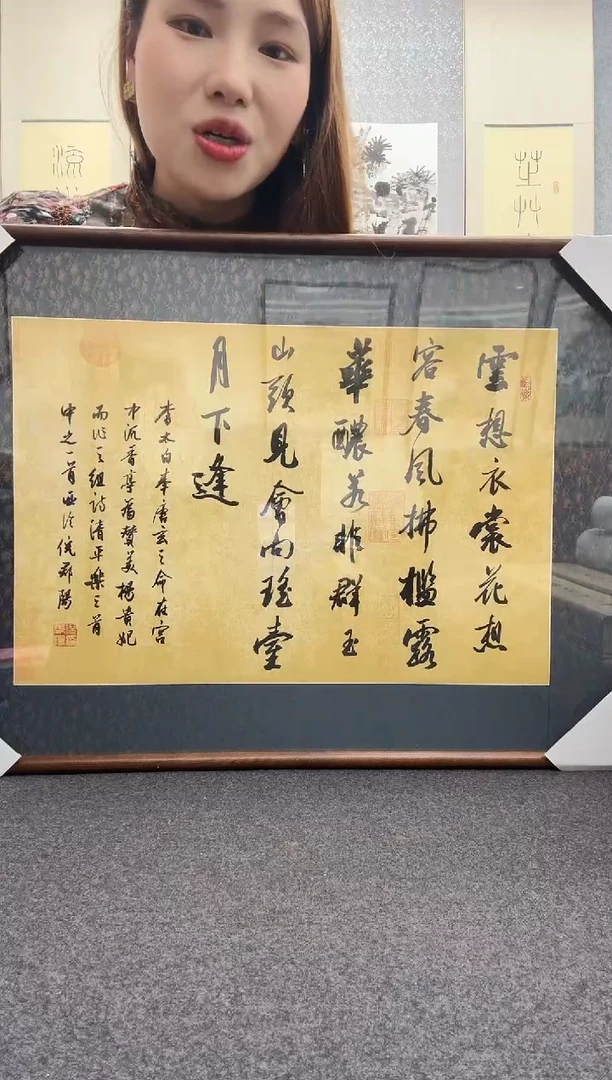 雲想衣裳花想
容春風拂檻露
華醲若非群玉
山頭見會向瑤臺
月下逢
李太白奉唐玄之命在宮
中沉香亭賛美楊貴妃
而作之組詩清平樂三首
中之一首西泠倪郡陽